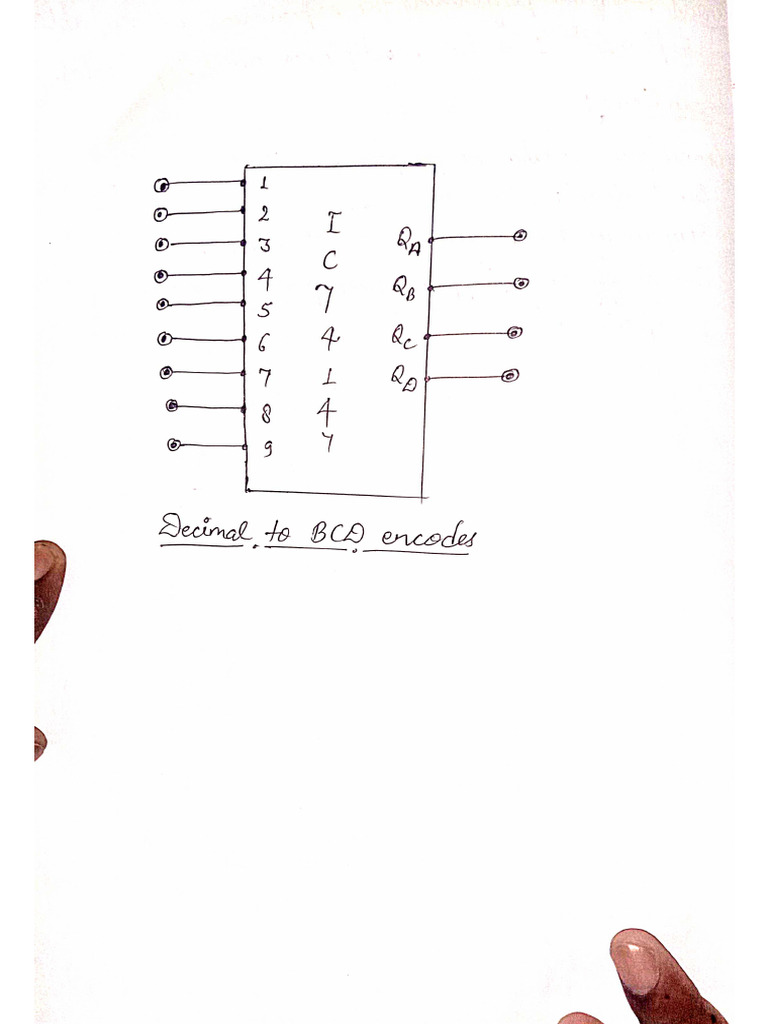 1
2
3
4
5
6
7
8
9
I
C
7
4
1
4
7
QA
QB
QC
QD
Decimal to BCD encodes